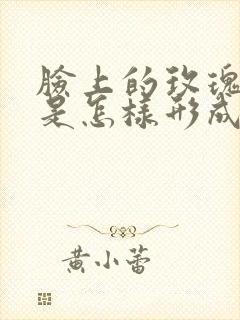 臉上的玫瑰
是怎樣形成
黃小蕾